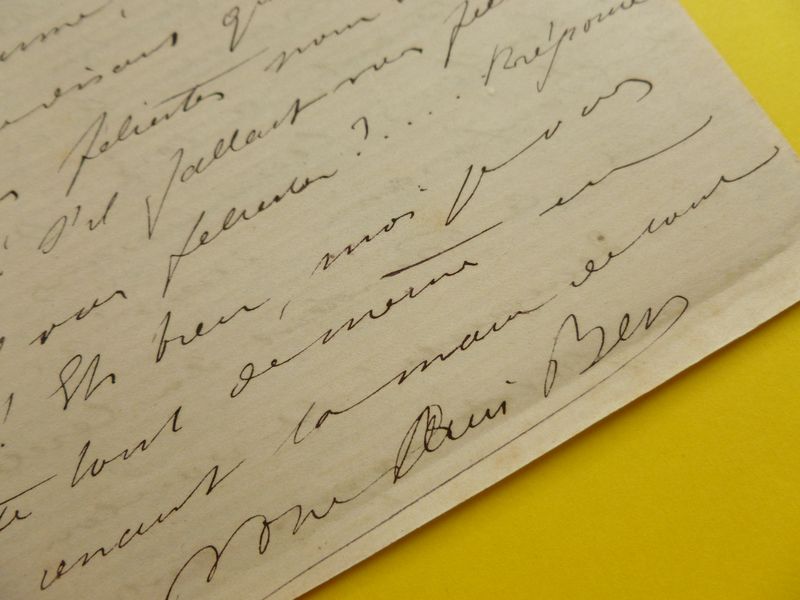 disais qu
félicités nous
s'il fallait nous fél
vous féliciter ? .... Réponse
! Eh bien, moi je vous
tout de même en
la main de tout
Votre Ben